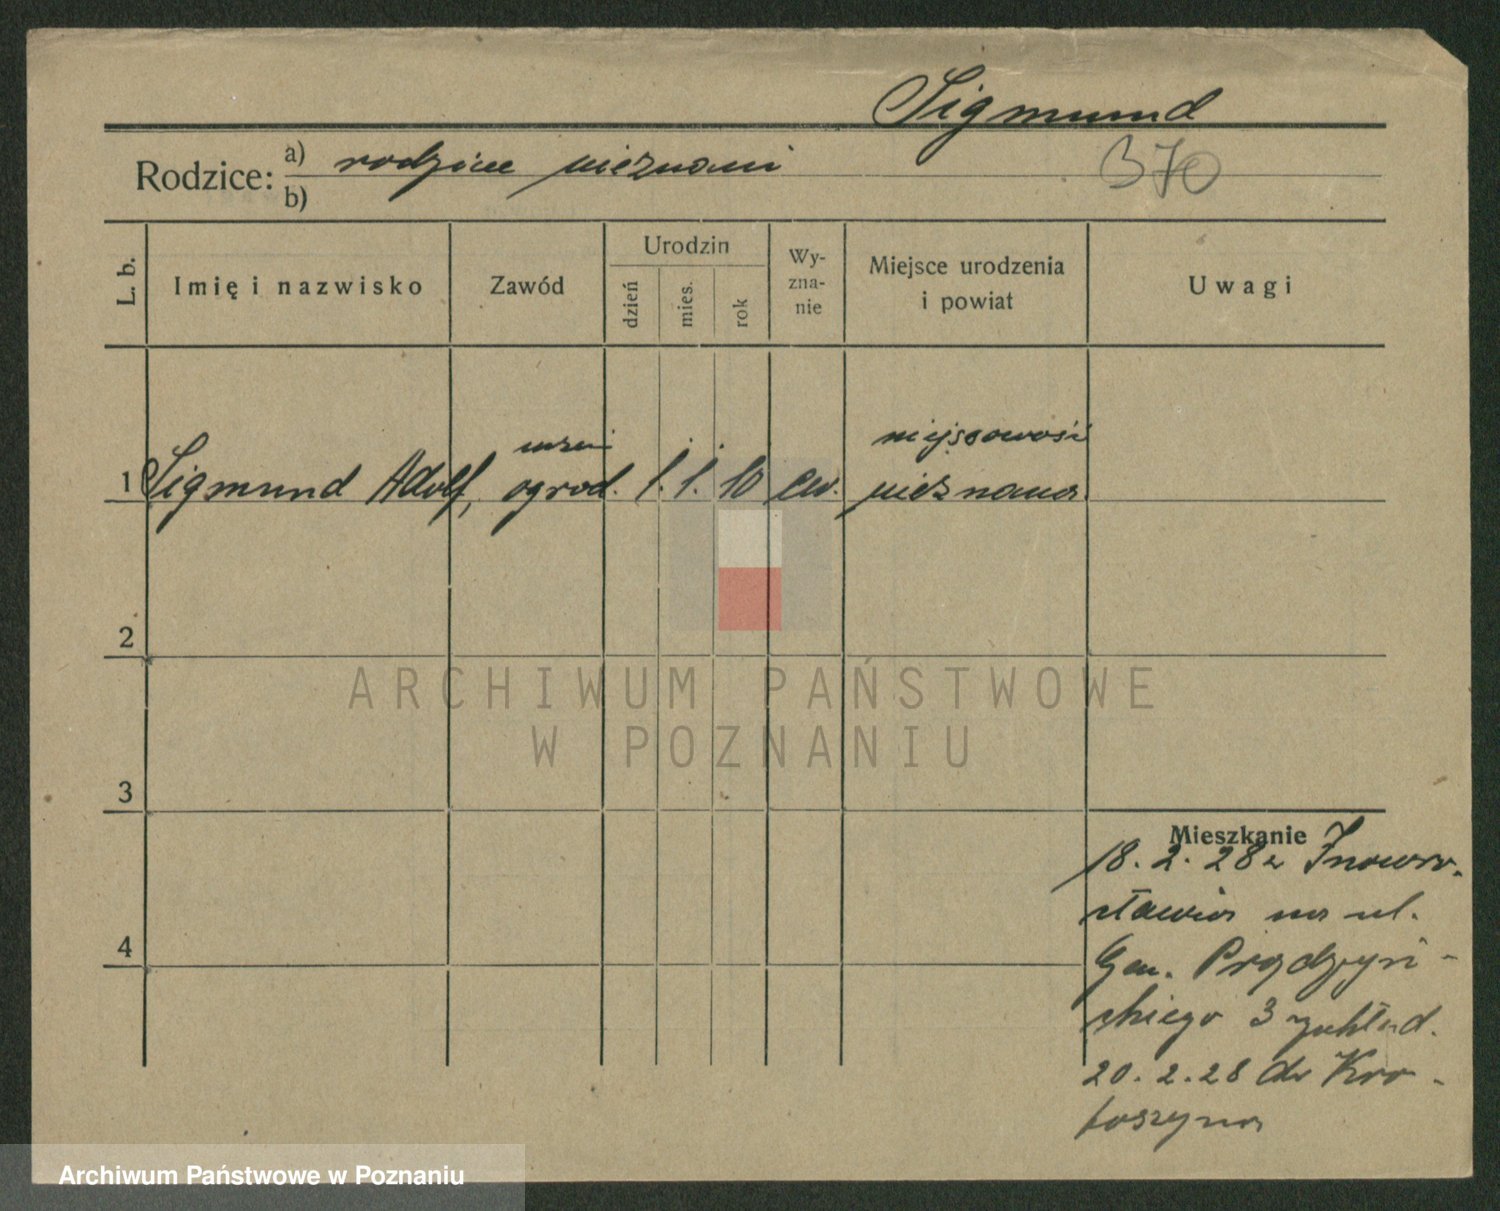 Sigmund
Rodzice: a) rodzice nieznani
b)
370
L. b.
Imię i nazwisko
Zawód
Urodzin
dzień
mies.
rok
Wy-
zna-
nie
Miejsce urodzenia
i powiat
Uwagi
1 Sigmund Adolf, ogrod. 1. 1. 10 ew. miejscowość
nieznana
2
3
4
Mieszkanie
18. 2. 28 z Inowro-
cławia na ul.
Gen. Prądzyń-
skiego 3 zakład.
20. 2. 28 do Kro-
toszyna
ARCHIWUM PAŃSTWOWE
W POZNANIU
Archiwum Państwowe w Poznaniu